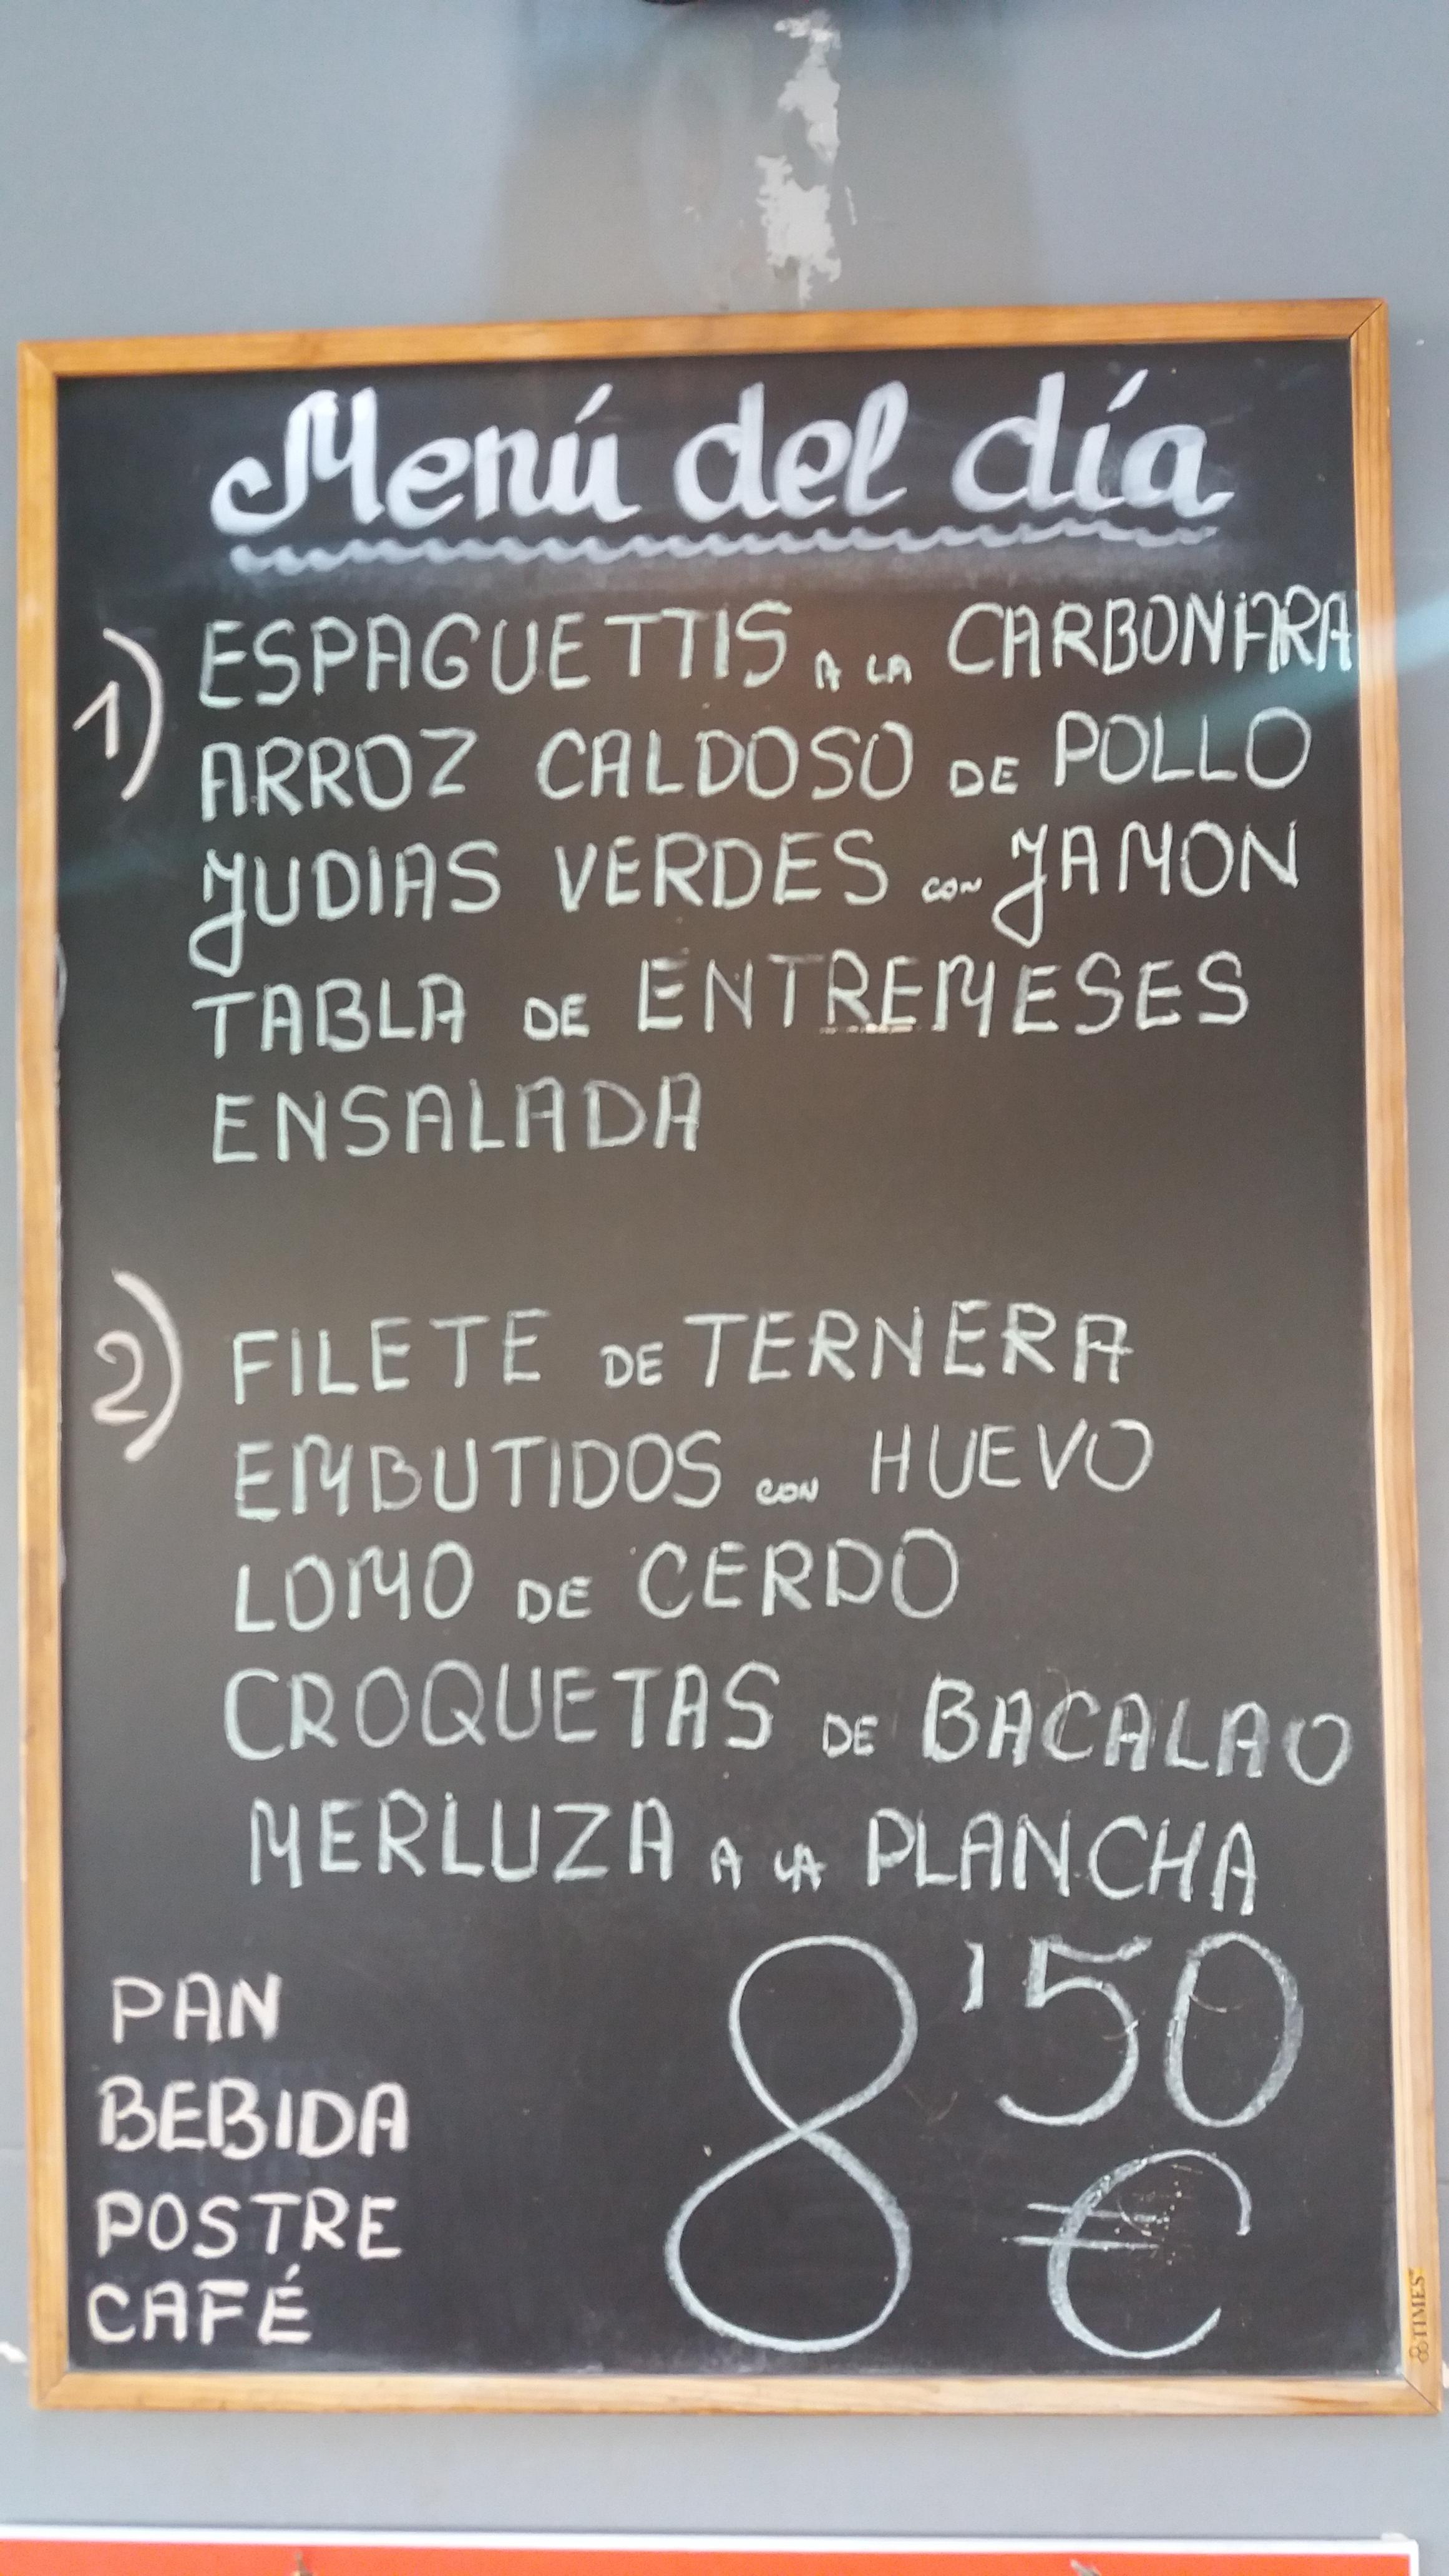 Menú del día
1) ESPAGUETTIS A LA CARBONARA
ARROZ CALDOSO DE POLLO
JUDIAS VERDES CON JAMON
TABLA DE ENTREMESES
ENSALADA
2) FILETE DE TERNERA
EMBUTIDOS CON HUEVO
LOMO DE CERDO
CROQUETAS DE BACALAO
MERLUZA A LA PLANCHA
PAN
BEBIDA
POSTRE
CAFÉ
8'50
€
TIMES